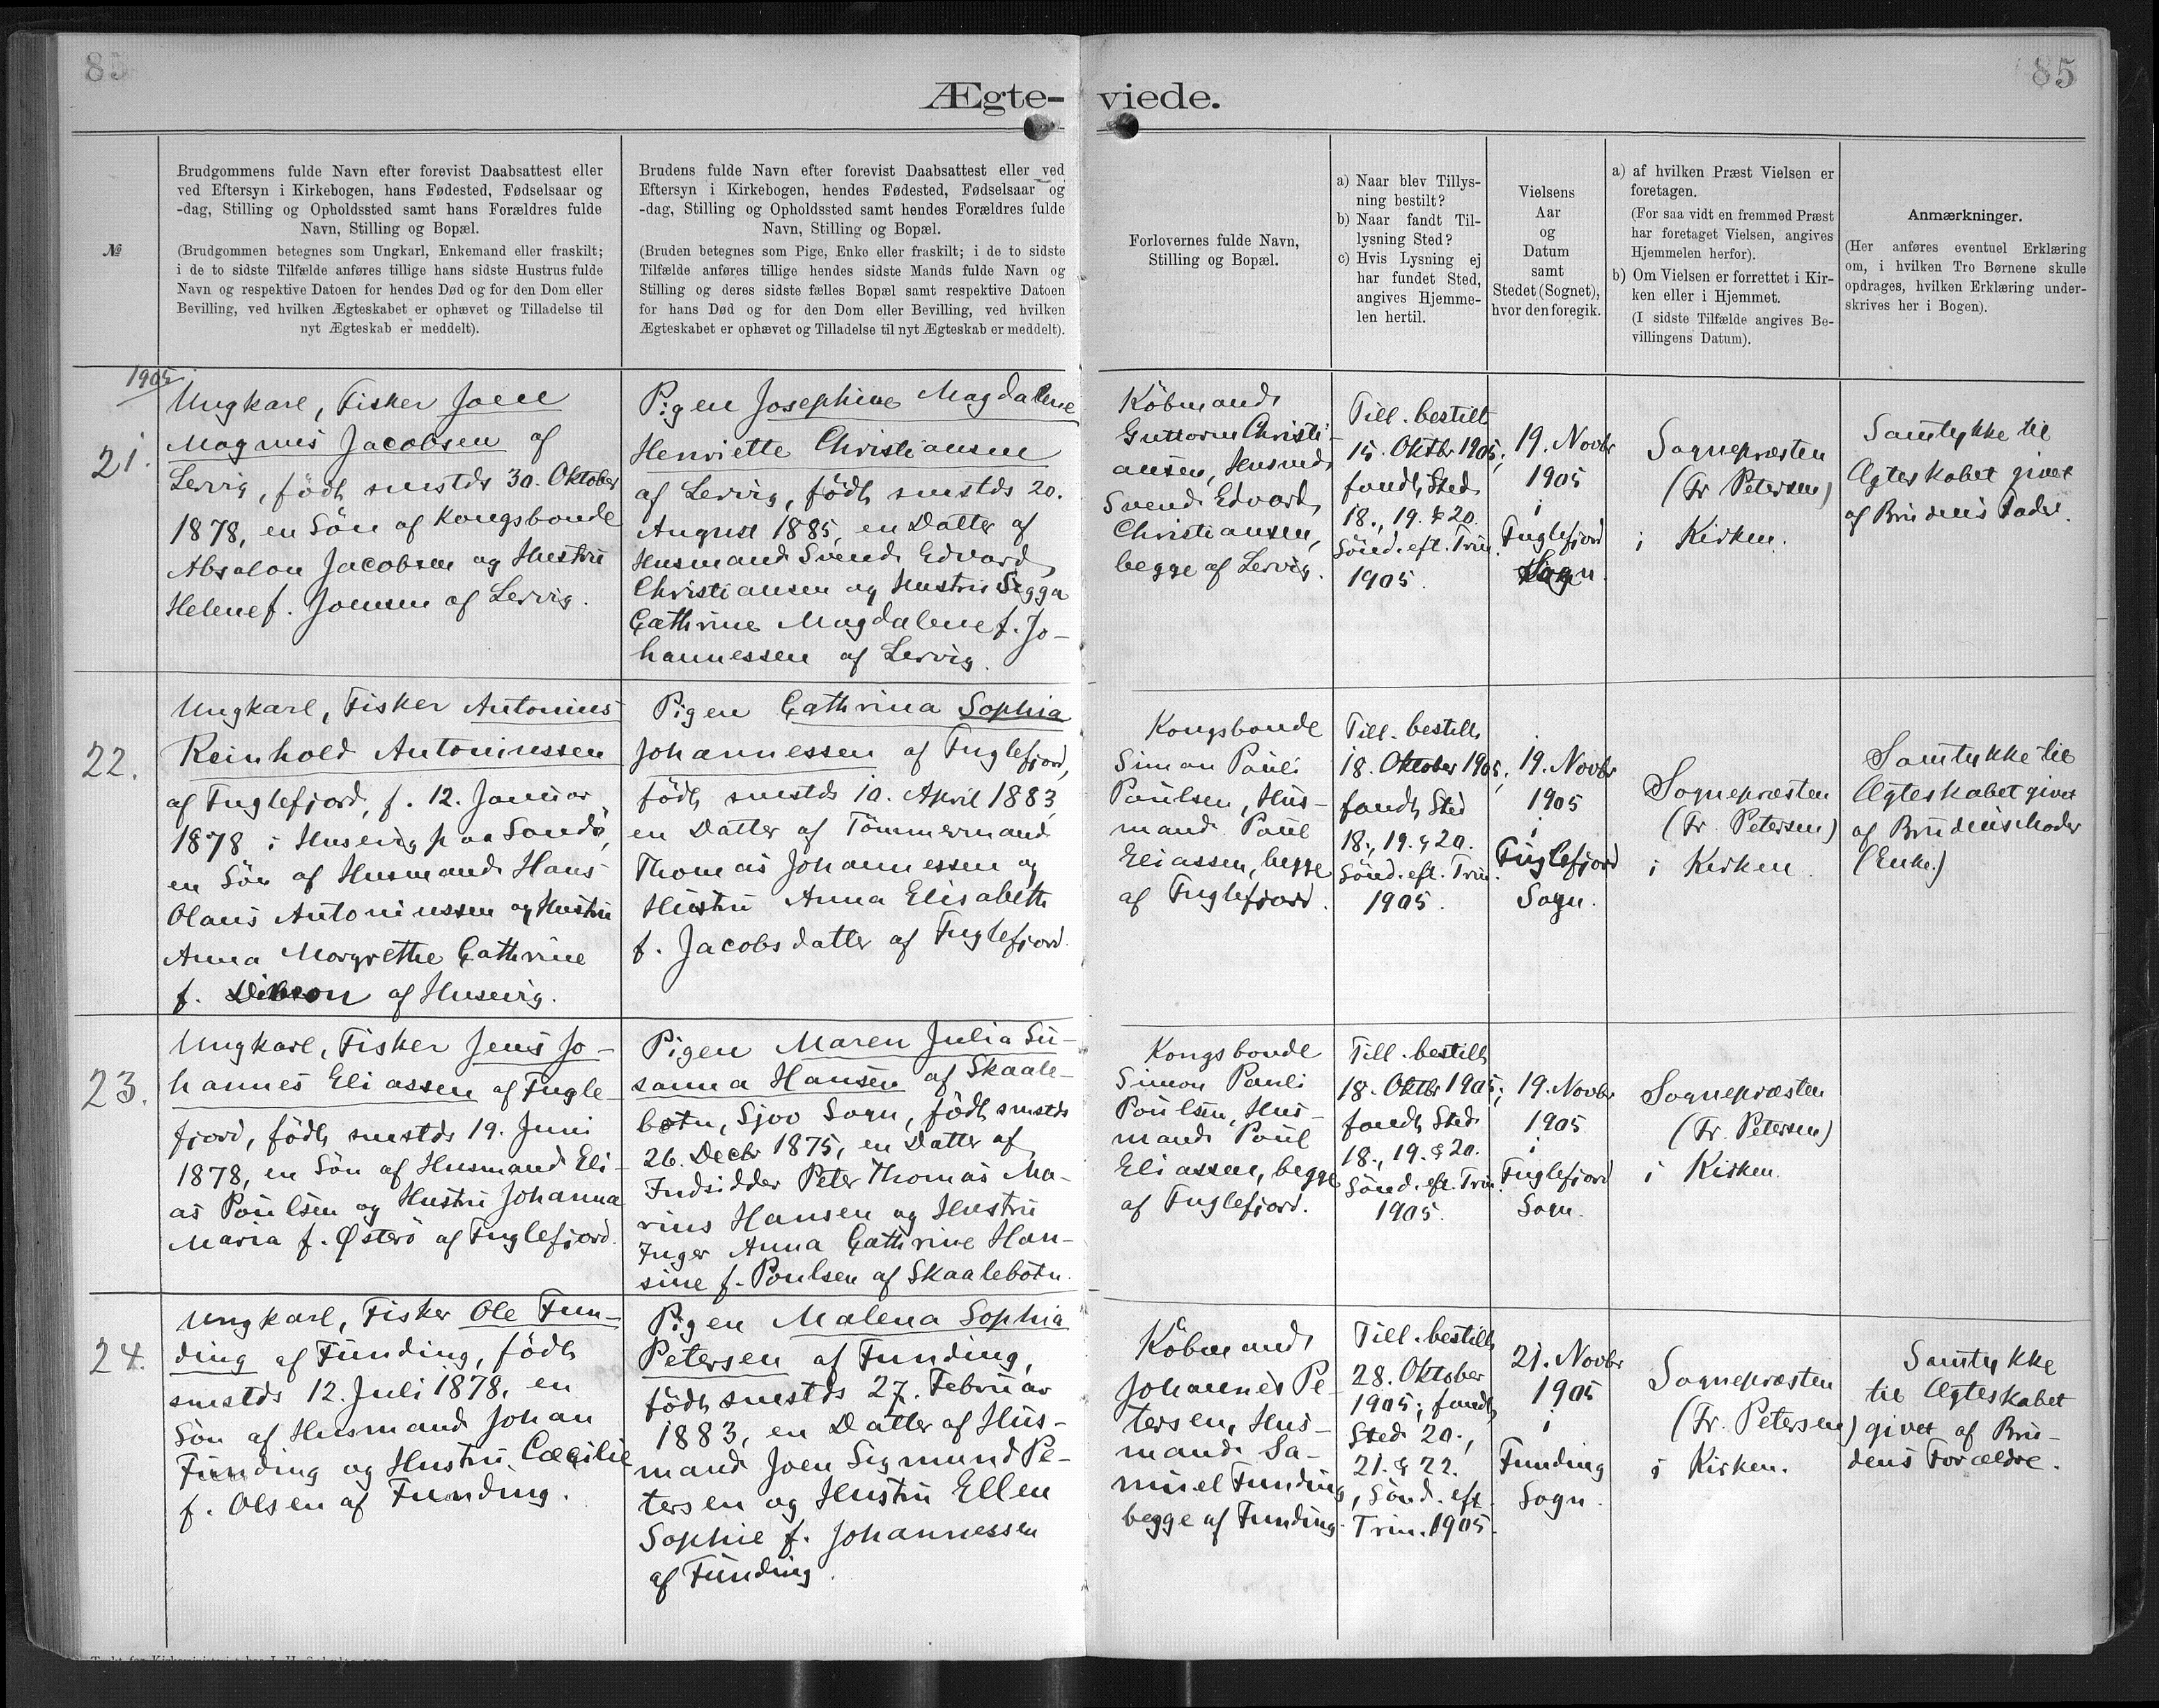 85
85
Ægte- viede.
№
Brudgommens fulde Navn efter forevist Daabsattest eller
ved Eftersyn i Kirkebogen, hans Fødested, Fødselsaar og
-dag, Stilling og Opholdssted samt hans Forældres fulde
Navn, Stilling og Bopæl.
(Brudgommen betegnes som Ungkarl, Enkemand eller fraskilt;
i de to sidste Tilfælde anføres tillige hans sidste Hustrus fulde
Navn og respektive Datoen for hendes Død og for den Dom eller
Bevilling, ved hvilken Ægteskabet er ophævet og Tilladelse til
nyt Ægteskab er meddelt).
Brudens fulde Navn efter forevist Daabsattest eller ved
Eftersyn i Kirkebogen, hendes Fødested, Fødselsaar og
-dag, Stilling og Opholdssted samt hendes Forældres fulde
Navn, Stilling og Bopæl.
(Bruden betegnes som Pige, Enke eller fraskilt; i de to sidste
Tilfælde anføres tillige hendes sidste Mands fulde Navn og
Stilling og deres sidste fælles Bopæl samt respektive Datoen
for hans Død og for den Dom eller Bevilling, ved hvilken
Ægteskabet er ophævet og Tilladelse til nyt Ægteskab er meddelt).
Forlovernes fulde Navn,
Stilling og Bopæl.
a) Naar blev Tillys-
ning bestilt?
b) Naar fandt Til-
lysning Sted?
c) Hvis Lysning ej
har fundet Sted,
angives Hjemme-
len hertil.
Vielsens
Aar
og
Datum
samt
Stedet (Sognet),
hvor den foregik.
a) af hvilken Præst Vielsen er
foretagen.
(For saa vidt en fremmed Præst
har foretaget Vielsen, angives
Hjemmelen herfor).
b) Om Vielsen er forrettet i Kir-
ken eller i Hjemmet.
(I sidste Tilfælde angives Be-
villingens Datum).
Anmærkninger.
(Her anføres eventuel Erklæring
om, i hvilken Tro Børnene skulle
opdrages, hvilken Erklæring under-
skrives her i Bogen).
1905
21.
Ungkarl, Fisker Joen
Magnus Jacobsen af
Lervig, född smstds 30. Oktober
1878, en Sön af Kongsbonde
Absalon Jacobsen og Hustru
Helene f. Joensen af Lervig.
Pigen Josephine Magdalene
Henriette Christiansen
af Lervig, född smstds 20.
August 1885, en Datter af
Husmand Svend Edvard
Christiansen og Hustru Sigga
Cathrine Magdalene f. Jo-
hannessen af Lervig.
Köbmand
Guttorm Christi-
ansen, Husmd
Svend Edvard
Christiansen,
begge af Lervig.
Till. bestilt
15. Oktbr 1905;
fandt Sted
18., 19. & 20.
Sönd. eft. Trin.
1905.
19. Novbr
1905
i
Fuglefjord
Sogn.
Sognepræsten
(Fr. Petersen)
i Kirken.
Samtykke til
Ægteskabet givet
af Brudens Fader.
22.
Ungkarl, Fisker Antonius
Reinhold Antoniussen
af Fuglefjord, f. 12. Januar
1878 i Husevig paa Sandö,
en Sön af Husmand Hans
Olaus Antoniussen og Hustru
Anna Margrethe Cathrine
f. Dibson af Husevig.
Pigen Cathrina Sophia
Johannessen af Fuglefjord,
födt smstds 10. April 1883,
en Datter af Tömmermand
Thomas Johannessen og
Hustru Anna Elisabeth
f. Jacobsdatter af Fuglefjord.
Kongsbonde
Simon Pauli
Poulsen, Hus-
mand Poul
Eliassen, begge
af Fuglefjord.
Till. bestilt
18. Oktober 1905,
fandt Sted
18., 19. & 20.
Sönd. eft. Trin.
1905.
19. Novbr
1905
i
Fuglefjord
Sogn.
Sognepræsten
(Fr. Petersen)
i Kirken.
Samtykke til
Ægteskabet givet
af Brudens Moder
(Enke.)
23.
Ungkarl, Fisker Jens Jo-
hannes Eliassen af Fugle-
fjord, födt smstds 19. Juni
1878, en Sön af Husmand Eli-
as Poulsen og Hustru Johanna
Maria f. Østerö af Fuglefjord.
Pigen Maren Julia Su-
sanna Hansen af Skaale-
botn, Sjov Sogn, födt smstds
26. Decbr 1875, en Datter af
Indsidder Peter Thomas Ma-
rius Hansen og Hustru
Inger Anna Cathrine Han-
sine f. Poulsen af Skaalebotn.
Kongsbonde
Simon Pauli
Poulsen, Hus-
mand Poul
Eliassen, begge
af Fuglefjord.
Till. bestilt
18. Oktbr 1905;
fandt Sted
18., 19. & 20.
Sönd. eft. Trin.
1905.
19. Novbr
1905
i
Fuglefjord
Sogn.
Sognepræsten
(Fr. Petersen)
i Kirken.
24.
Ungkarl, Fisker Ole Fun-
ding af Funding, födt
smstds 12. Juli 1878, en
Sön af Husmand Johan
Funding og Hustru Cæcilie
f. Olsen af Funding.
Pigen Malena Sophia
Petersen af Funding,
födt smstds 27. Februar
1883, en Datter af Hus-
mand Joen Sigmund Pe-
tersen og Hustru Ellen
Sophie f. Johannessen
af Funding.
Köbmand
Johannes Pe-
tersen, Hus-
mand Sa-
muel Funding,
begge af Funding.
Till. bestilt
28. Oktober
1905; fandt
Sted 20.,
21. & 22.
Sönd. eft.
Trin. 1905.
21. Novbr
1905
i
Funding
Sogn.
Sognepræsten
(Fr. Petersen)
i Kirken.
Samtykke
til Ægteskabet
givet af Bru-
dens Forældre.